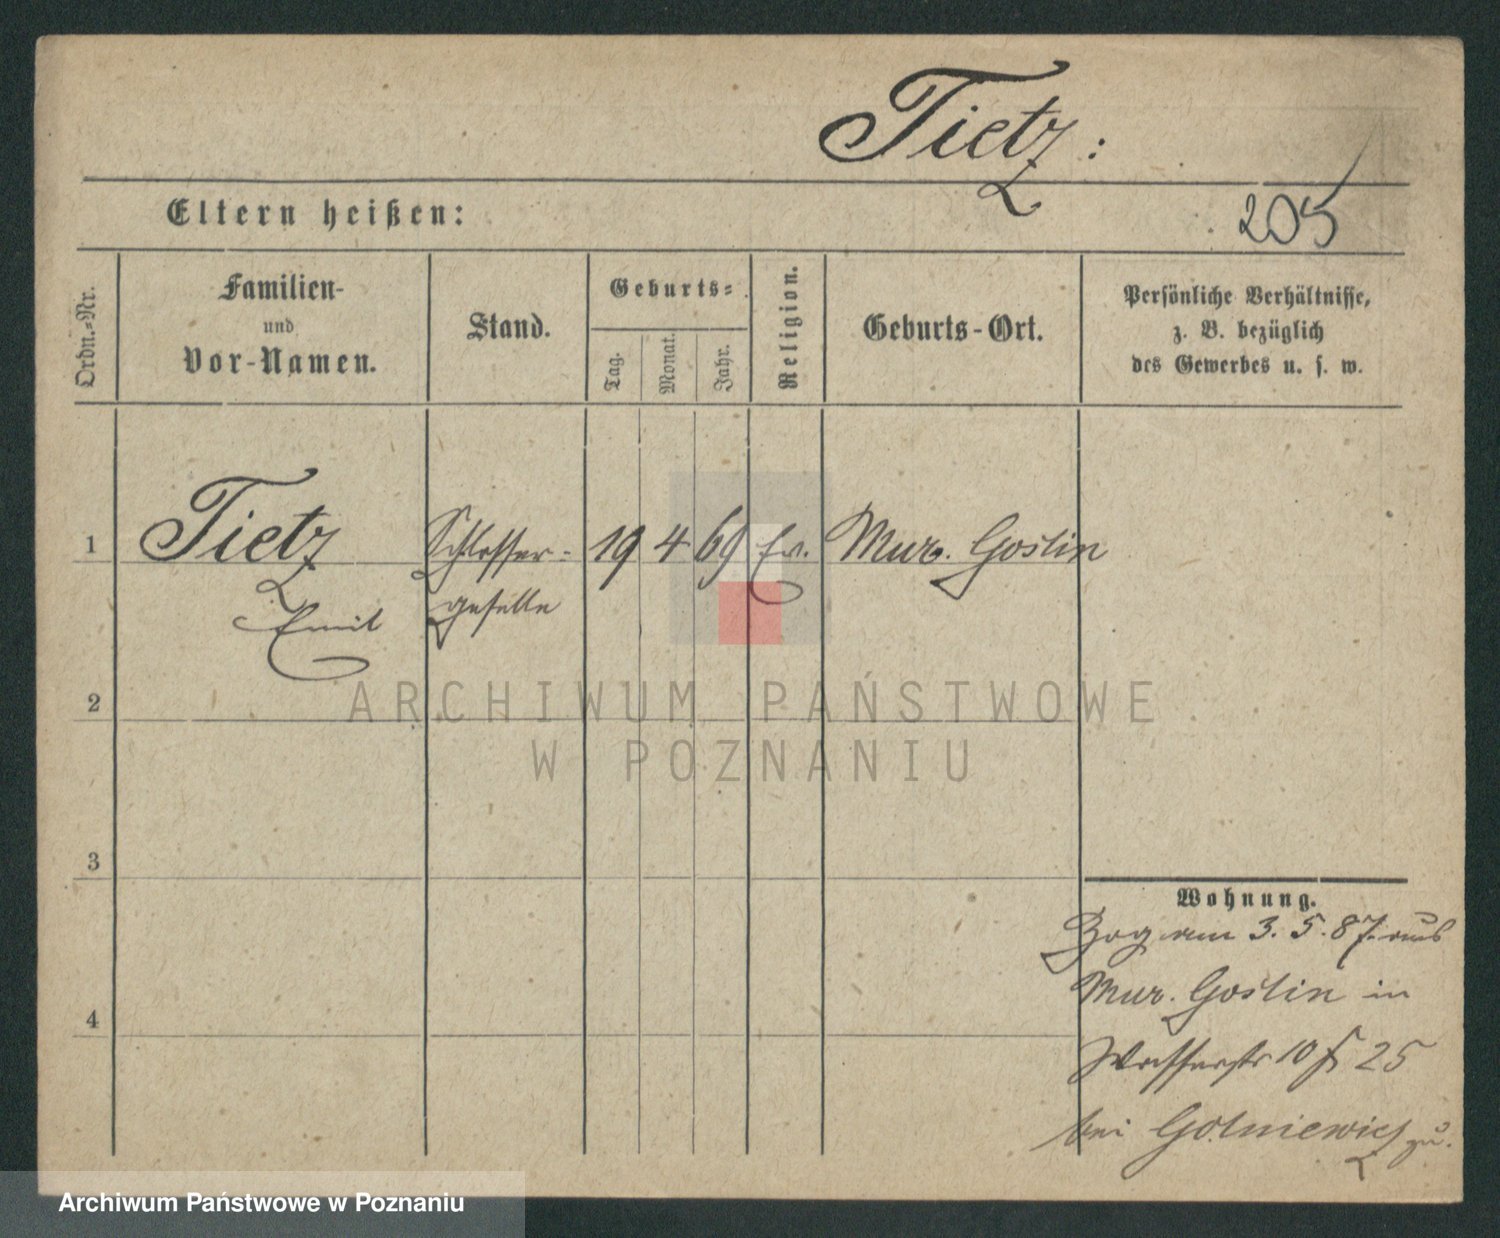 Tietz:
Eltern heißen:
205
Ordn.-Nr.
Familien-
und
Vor-Namen.
Stand.
Geburts-
Tag.
Monat.
Jahr.
Religion.
Geburts-Ort.
Persönliche Verhältnisse,
z. B. bezüglich
des Gewerbes u. s. w.
1
Tietz
Emil
Schlosser-
geselle
19 4 69 Ev. Mur. Goslin
2
3
4
Wohnung.
Zog am 3. 5. 87. aus
Mur. Goslin in
Wasserstr 10 25
bei zu.
ARCHIWUM PAŃSTWOWE
W POZNANIU
Archiwum Państwowe w Poznaniu